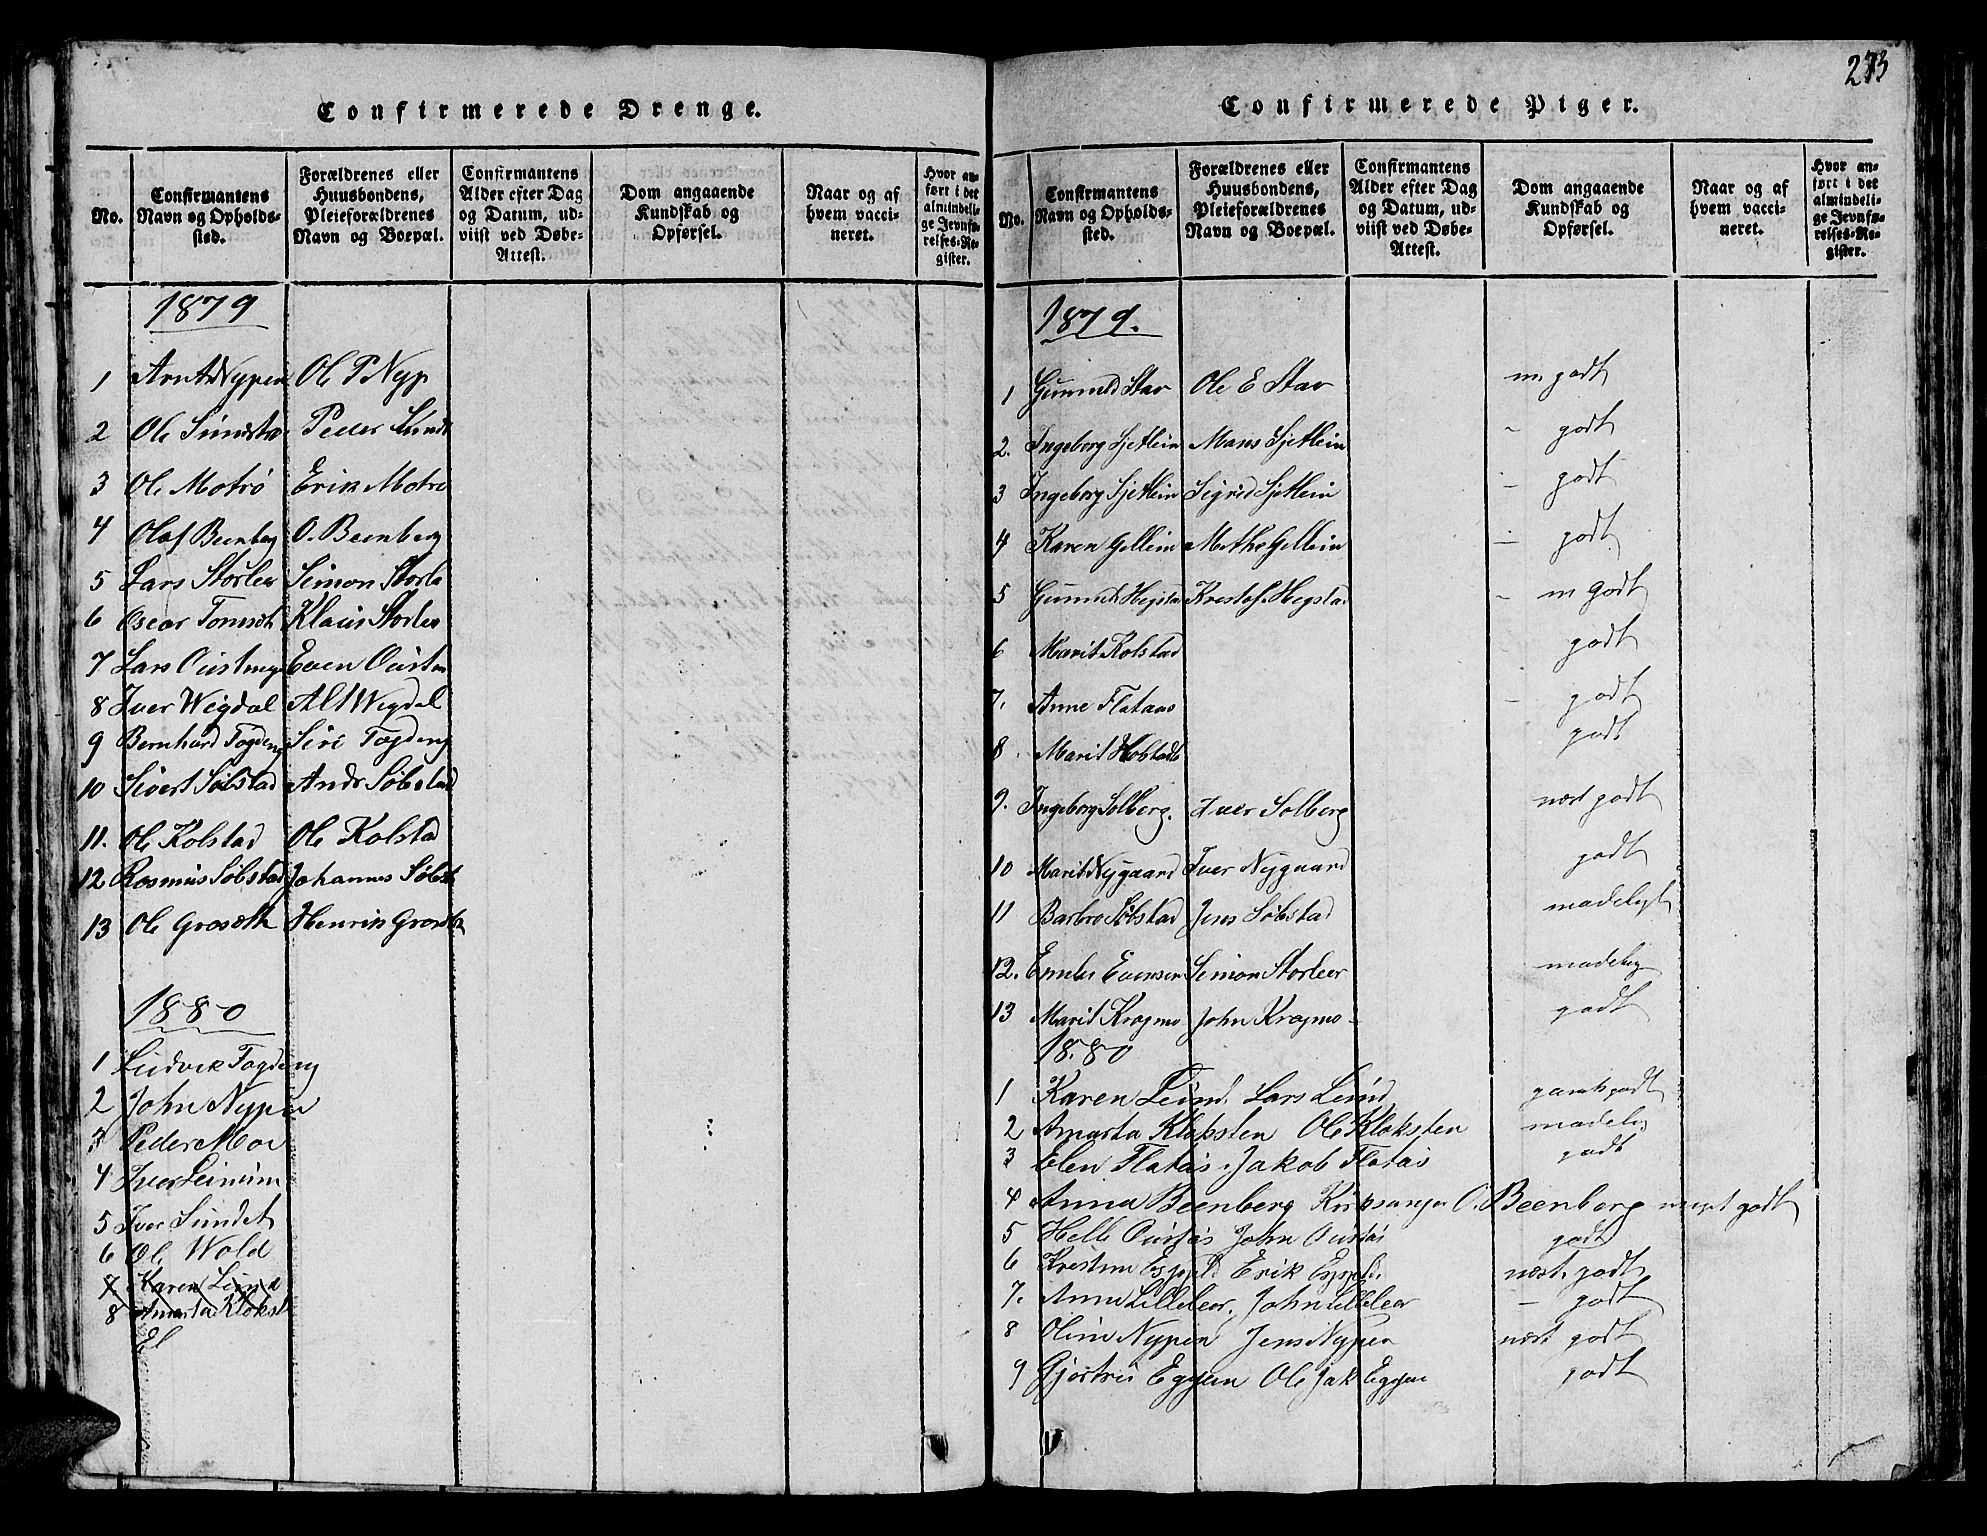 Confirmerede Drenge.
No.
Confirmantens Navn og Opholds-sted.
Forældrenes eller Huusbondens, Pleieforældrenes Navn og Boepæl.
Confirmantens Alder efter Dag og Datum, ud-viist ved Døbe-Attest.
Dom angaaende Kundskab og Opførsel.
Naar og af hvem vacci-neret.
Hvor an-ført i det almindeli-ge Jevnfø-relses-Re-gister.
1879
1 Arnt Nypen Ole P Nyp
2 Ole Peder Sundt
3 Ole Motrö Erik Motrö
4 Olaf Beenberg O. Beenberg
5 Lars Storler Simon Storle
6 Oscar Klaus Storler
7 Lars Oustmyr Even
8 Iver Wigdal Wigdal
9 Bernhard Togdeng Siri Togdeng
10 Sivert Söbstad Andr Söbstad
11. Ole Kolstad Ole Kolstad
12 Rasmus Söbstad Johannes Söbst
13 Ole Groseth Henrik Groseth
1880
1 Ludvik Togdeng
2 John Nypen
3 Peder Moe
4 Iver Leinum
5 Iver Sundet
6 Ole Wold
7 Karen Lund
8 Amarta Klokst
El
273
Confirmerede Piger.
No.
Confirmantens Navn og Opholds-sted.
Forældrenes eller Huusbondens, Pleieforældrenes Navn og Boepæl.
Confirmantens Alder efter Dag og Datum, ud-viist ved Døbe-Attest.
Dom angaaende Kundskab og Opførsel.
Naar og af hvem vacci-neret.
Hvor an-ført i det almindeli-ge Jevnfø-relses-Re-gister.
1879.
1 Gunnild Stav Ole E Stav m godt
2. Ingeborg Sjetlein Mans Sjetlein - godt
3 Ingeborg Sjetlein Sigrid Sjetlein - godt
4 Karen Gellein Methe Gellein - godt
5 Gunnild Hegstad Kristof. Hegstad - m godt
6 Marit Kolstad godt
7. Anne Flataas - godt
8 Marit Hobstad godt
9. Ingeborg Solberg. Iver Solberg næst godt
10 Marit Nygaard Iver Nygaard godt
11 Barbro Söbstad Jens Söbstad madeligt
12. Evensen Simon Storleer madelig
13 Marit Kragmo John Kragmo godt
1880
1 Karen Lund. Lars Lund godt
2 Amarta Kloksten Ole Kloksten madelig
3 Elen Flatås. Jakob Flatås godt
4 Anna Beenberg Kirksanger O. Beenberg meget godt
5 Helle Oustås John Oustås godt
6 Kristine Erik næst. godt
7. Anne Lilleleer, John Lilleleer - godt
8 Oline Nypen Jens Nypen næst godt
9 Gjertrü Eggen Ole Jak Eggen godt